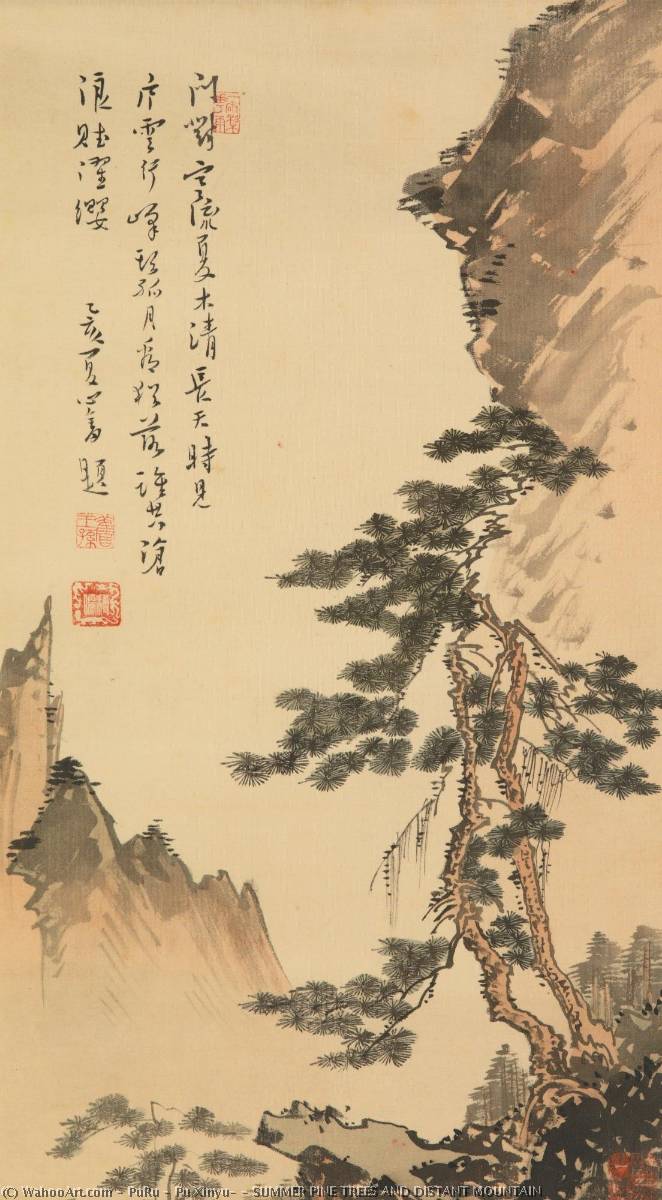 門對寒流夏木清長天時見
片雲行峰頭孤月看猶落誰共滄
浪賦濯纓 乙亥夏心畬題
舊王孫
© WahooArt.com - PuRu - Pu Xinyu- - SUMMER PINE TREES AND DISTANT MOUNTAIN